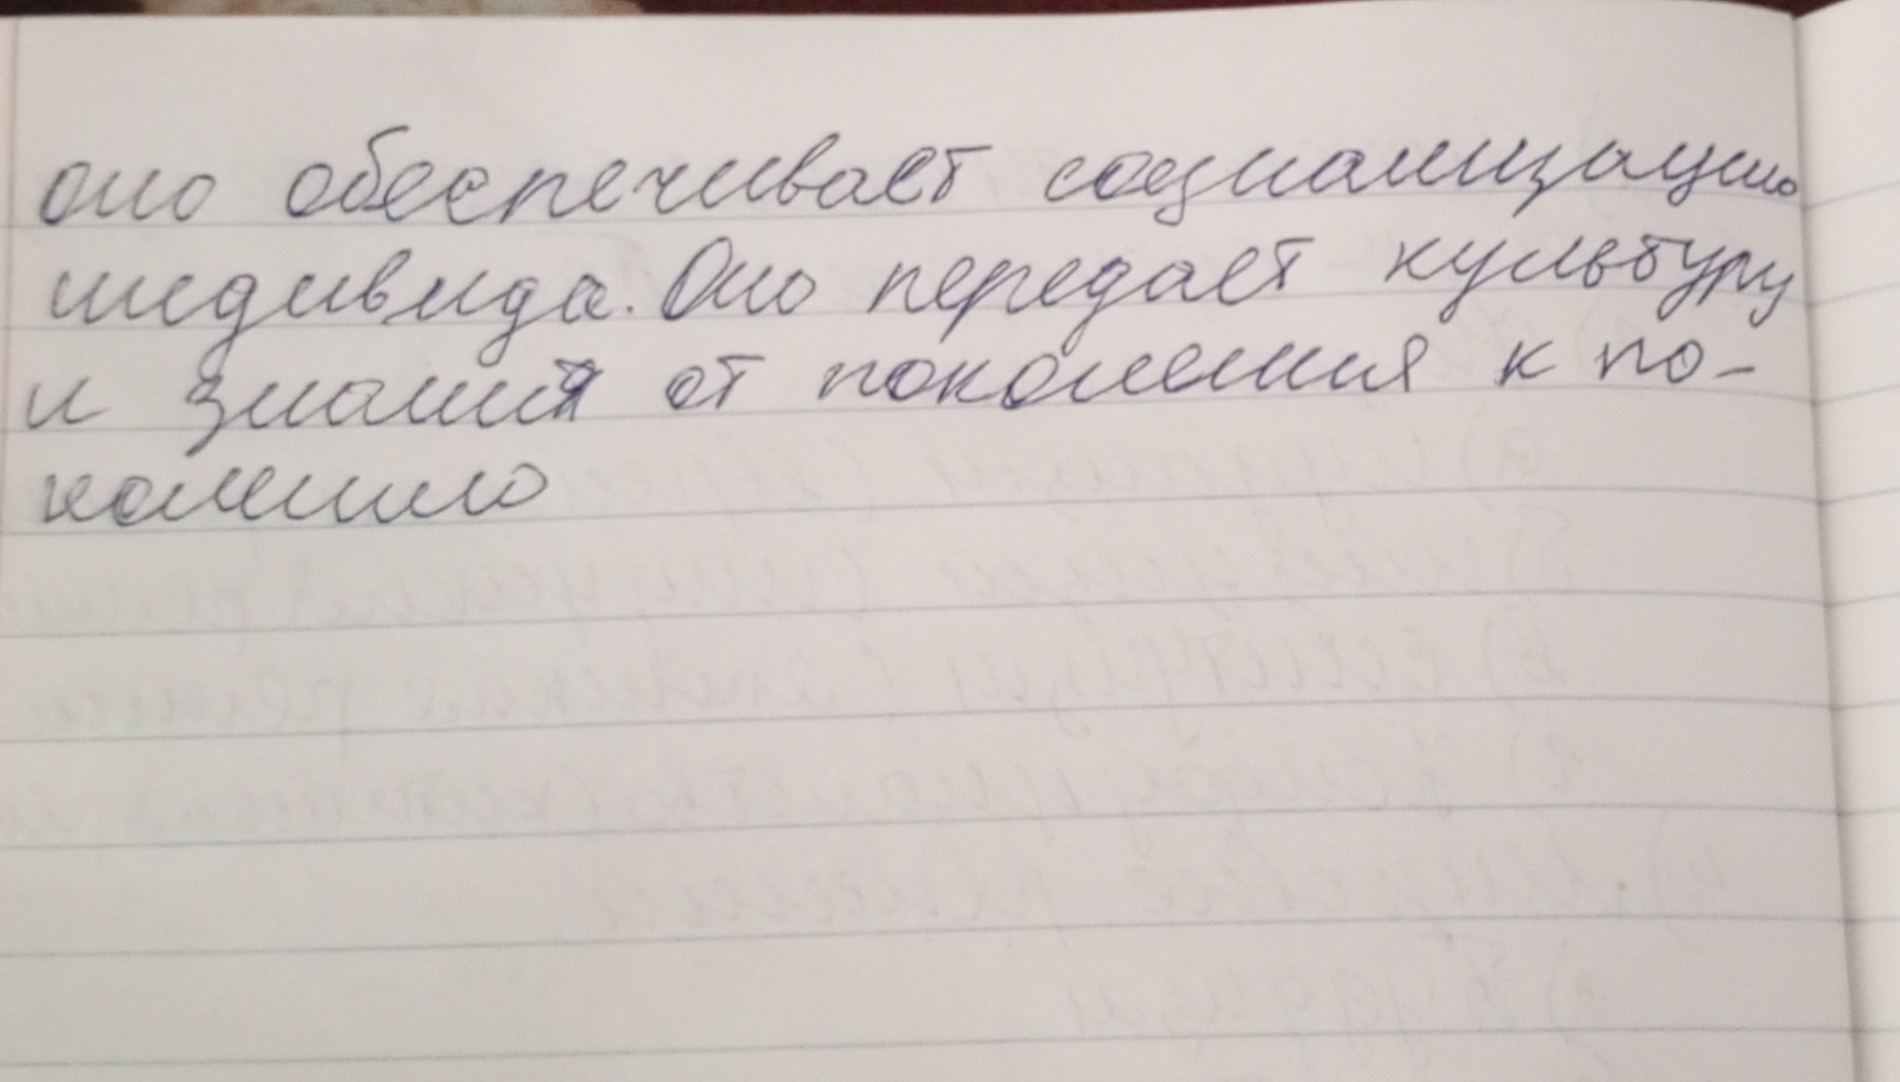 оно обеспечивает социализацию
индивида. Оно передает культуру
и знания от поколения к по-
колению